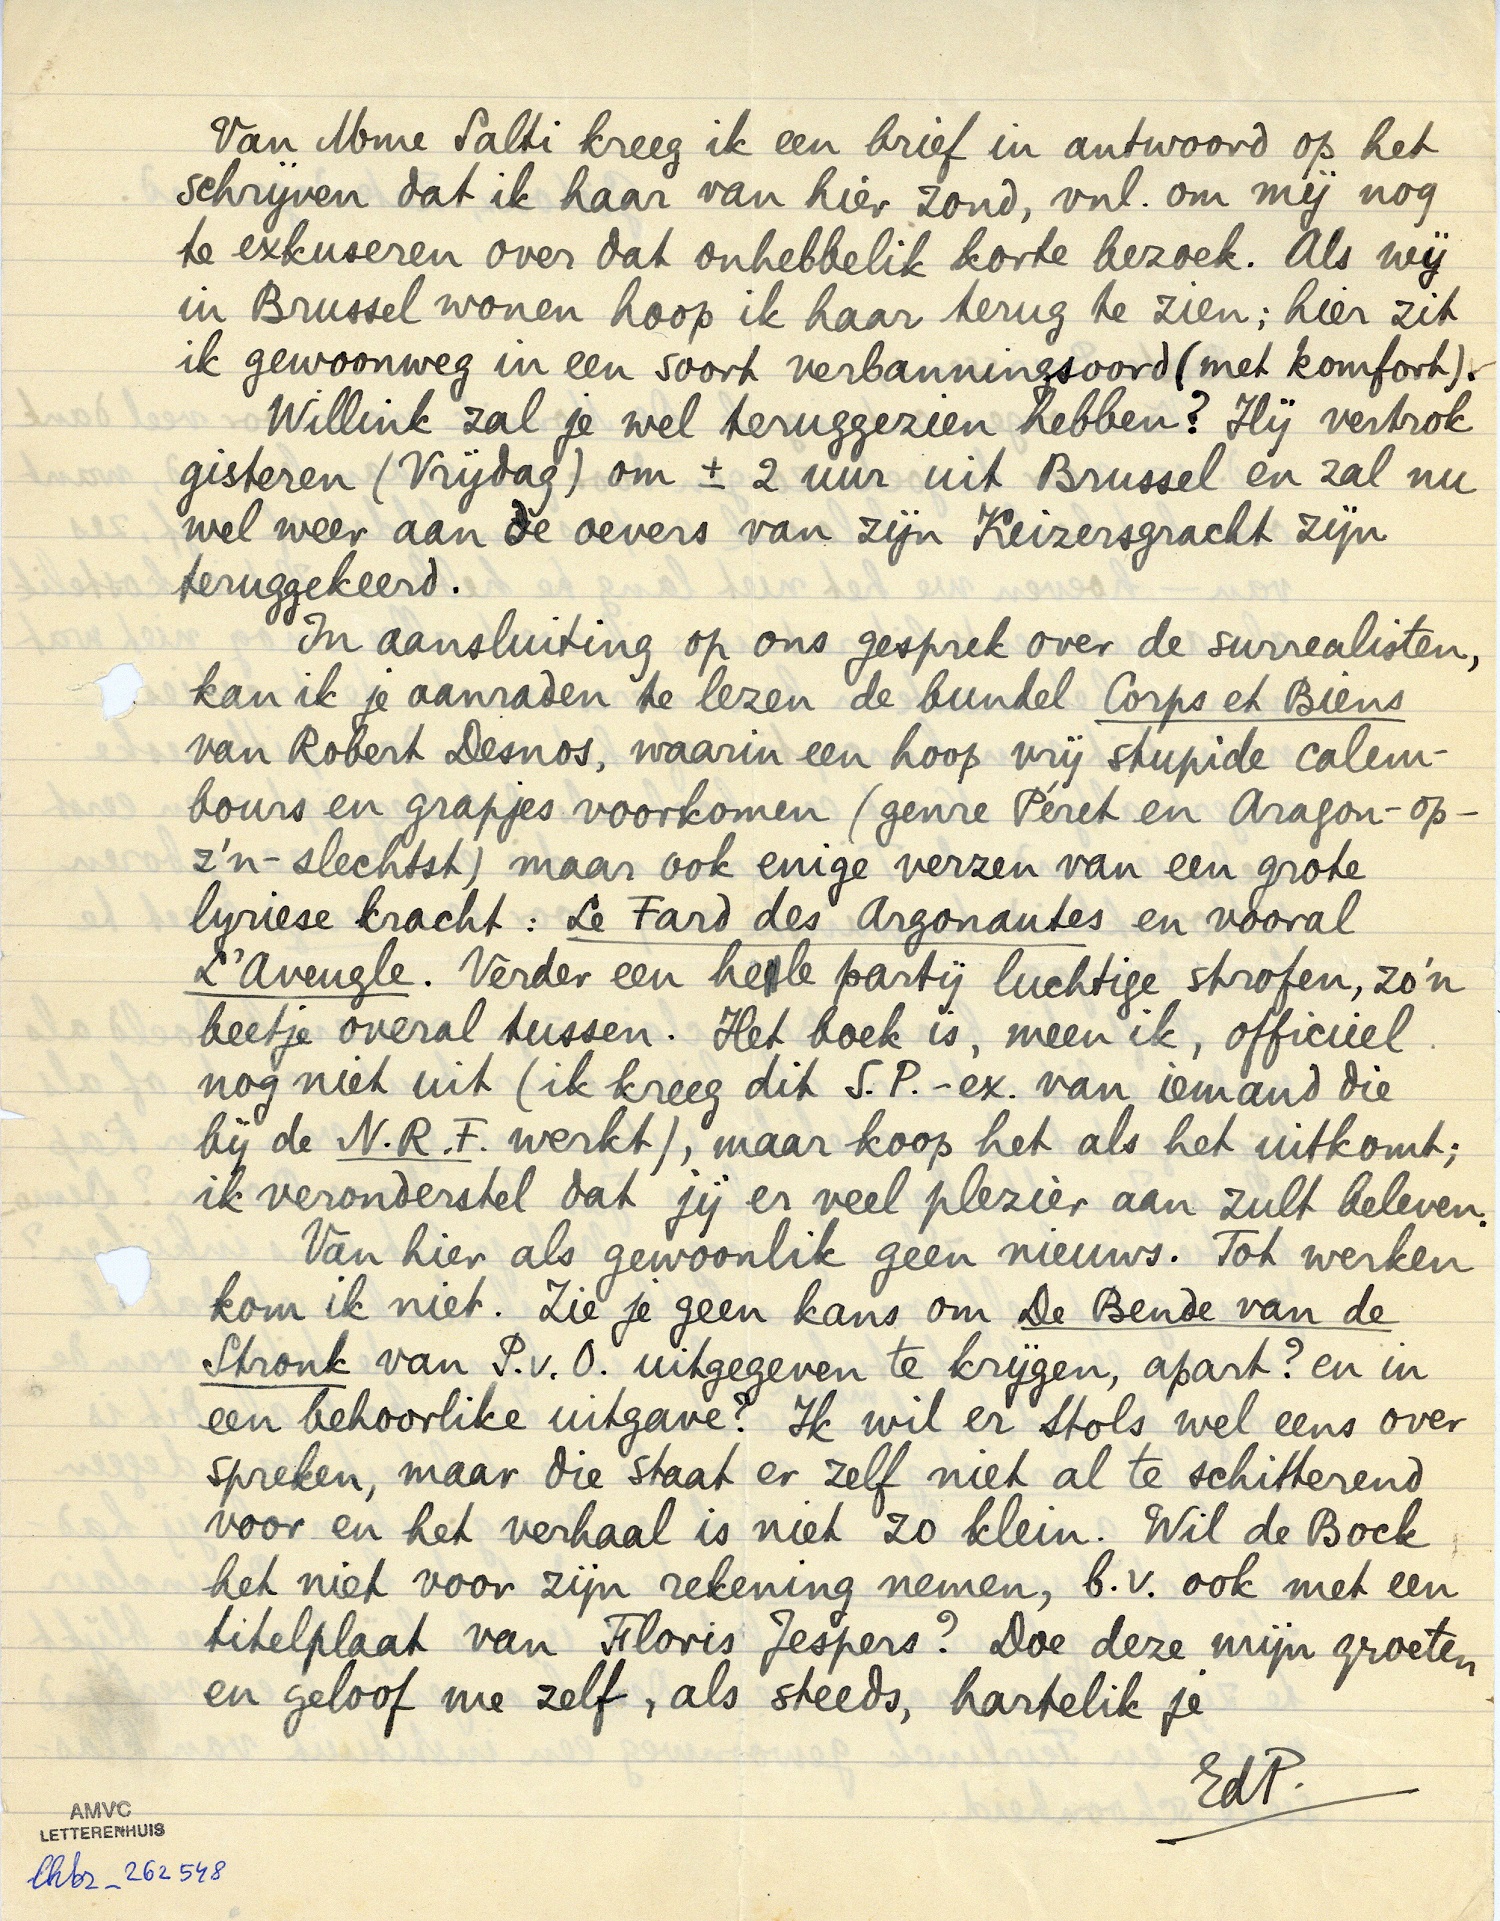 Van Mme Salti kreeg ik een brief in antwoord op het
schrijven dat ik haar van hier zond, vnl. om mij nog
te exkuseren over dat onhebbelik korte bezoek. Als wij
in Brussel wonen hoop ik haar terug te zien; hier zit
ik gewoonweg in een soort verbanningsoord (met komfort).
Willink zal je wel teruggezien hebben? Hij vertrok
gisteren (Vrijdag) om ± 2 uur uit Brussel en zal nu
wel weer aan de oevers van zijn Keizersgracht zijn
teruggekeerd.
In aansluiting op ons gesprek over de surrealisten,
kan ik je aanraden te lezen de bundel Corps et Biens
van Robert Desnos, waarin een hoop vrij stupide calem-
bours en grapjes voorkomen (genre Péret en Aragon-op-
z'n-slechtst) maar ook enige verzen van een grote
lyriese kracht: Le Fard des Argonautes en vooral
L'Aveugle. Verder een hele partij luchtige strofen, zo'n
beetje overal tussen. Het boek is, meen ik, officiëel
nog niet uit (ik kreeg dit S.P.-ex. van iemand die
bij de N.R.F. werkt), maar koop het als het uitkomt;
ik veronderstel dat jij er veel plezier aan zult beleven.
Van hier als gewoonlik geen nieuws. Tot werken
kom ik niet. Zie je geen kans om De Bende van de
Stronk van P.v.O. uitgegeven te krijgen, apart? en in
een behoorlike uitgave? Ik wil er Stols wel eens over
spreken, maar die staat er zelf niet al te schitterend
voor en het verhaal is niet zo klein. Wil de Bock
het niet voor zijn rekening nemen, b.v. ook met een
titelplaat van Floris Jespers? Doe deze mijn groeten
en geloof me zelf, als steeds, hartelik je
EdP.
AMVC
LETTERENHUIS
lhbr_262548